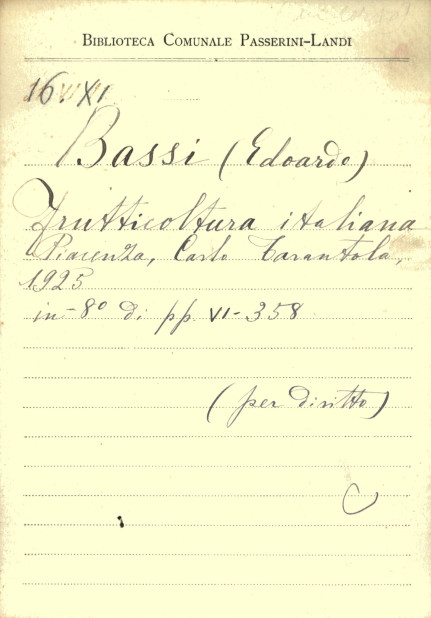 BIBLIOTECA COMUNALE PASSERINI-LANDI
16. XI
Bassi (Edoardo)
Frutticoltura italiana
Piacenza, Carlo Tarantola,
1925
in-8° di pp. VI-358
(per diritto)
C